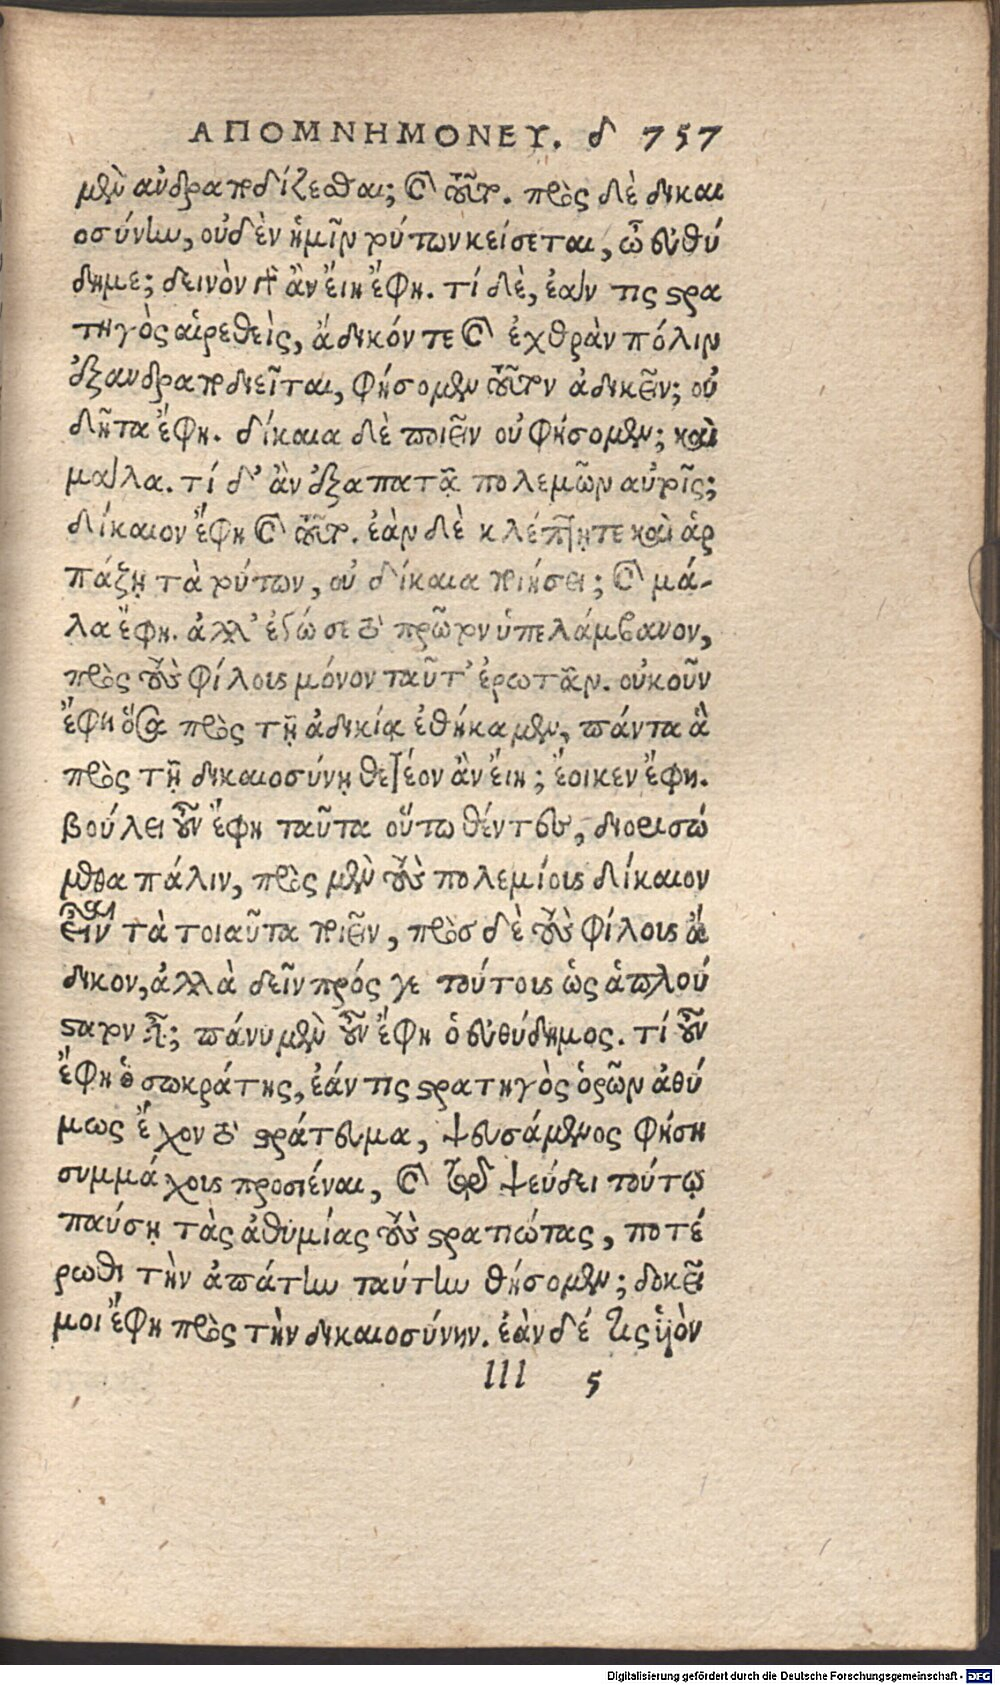 ΑΠΟΜΝΗΜΟΝΕΥ. δ 757
μὲν ἀνδραποδίζεσθαι; καὶ τοῦτο. πρὸς δὲ δικαι
οσύνην, οὐδὲν ἡμῖν τούτων κείσεται, ὦ εὐθύ
δημε; δεινὸν γὰρ ἂν εἴη ἔφη. τί δὲ, ἐάν τις στρα
τηγὸς αἱρεθεὶς, ἄδικόν τε καὶ ἐχθρὰν πόλιν
ἐξανδραποδιεῖται, φήσομεν τοῦτον ἀδικεῖν; οὐ
δῆτα ἔφη. δίκαια δὲ ποιεῖν οὐ φήσομεν; καὶ
μάλα. τί δ' ἂν ἐξαπατᾷ πολεμῶν αὐτοῖς;
δίκαιον ἔφη καὶ τοῦτο. ἐὰν δὲ κλέπτῃ τε καὶ ἁρ
πάζῃ τὰ τούτων, οὐ δίκαια ποιήσει; καὶ μά-
λα ἔφη. ἀλλ' ἐγώ σε τὸ πρῶτον ὑπελάμβανον,
πρὸς τοὺς φίλους μόνον ταῦτ' ἐρωτᾶν. οὐκοῦν
ἔφη ὅσα πρὸς τῇ ἀδικίᾳ ἐθήκαμεν, πάντα ἃ
πρὸς τῇ δικαιοσύνῃ θετέον ἂν εἴη; ἔοικεν ἔφη.
βούλει οὖν ἔφη ταῦτα οὕτω θέντες, διορισώ
μεθα πάλιν, πρὸς μὲν τοὺς πολεμίους δίκαιον
εἶναι τὰ τοιαῦτα ποιεῖν, πρὸς δὲ τοὺς φίλους ἄ
δικον, ἀλλὰ δεῖν πρός γε τούτους ὡς ἁπλού
στατον εἶναι; πάνυ μὲν οὖν ἔφη ὁ εὐθύδημος. τί οὖν
ἔφη ὁ σωκράτης, ἐάν τις στρατηγὸς ὁρῶν ἀθύ
μως ἔχον τὸ στράτευμα, ψευσάμενος φήσῃ
συμμάχους προσιέναι, καὶ τῷ ψεύδει τούτῳ
παύσῃ τὰς ἀθυμίας τοὺς στρατιώτας, ποτέ
ρωθι τὴν ἀπάτην ταύτην θήσομεν; δοκεῖ
μοι ἔφη πρὸς τὴν δικαιοσύνην. ἐὰν δέ τις ὑιὸν
lll 5
Digitalisierung gefördert durch die Deutsche Forschungsgemeinschaft - DFG